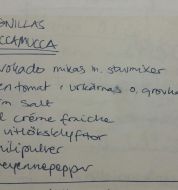 GNILLAS
CCAMUCCA
vokado mixas m. stavmixer
en tomat, urkärnas o. grovha
m salt
l crème fraiche
vitlöksklyftor
hilipulver
ayennepeppar